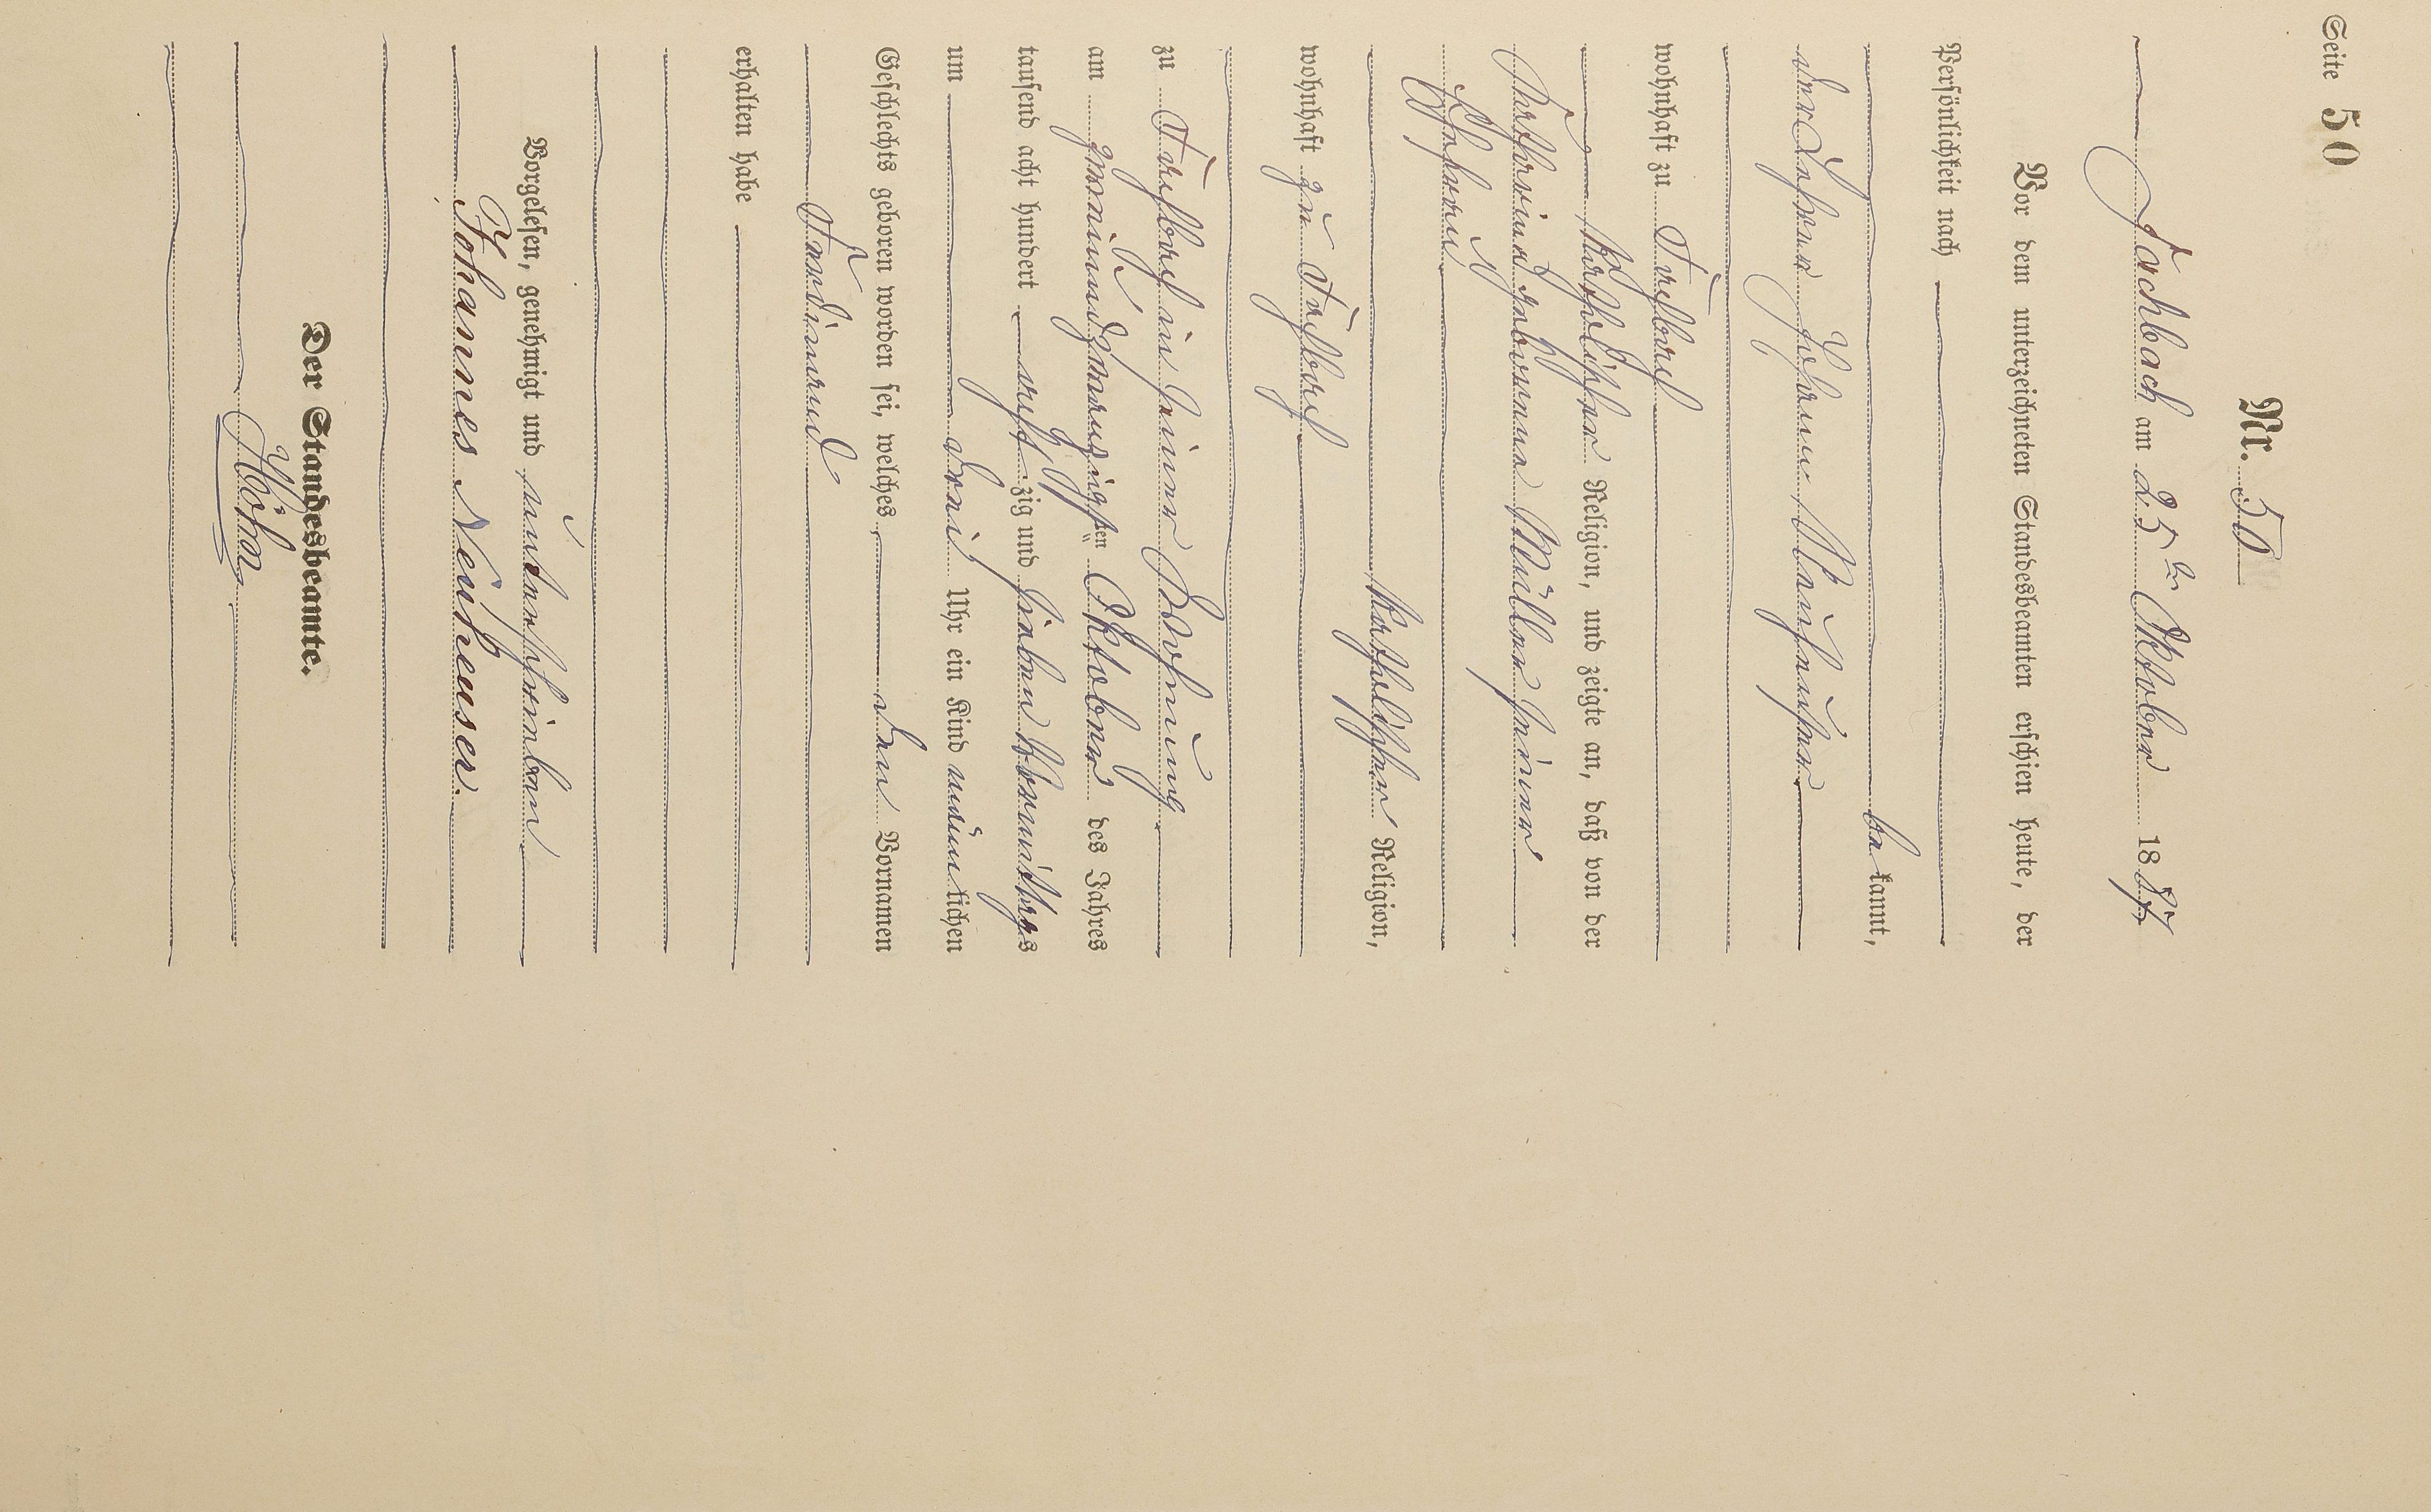 Seite 50
Nr. 50
Fachbach am 25ten Oktober 1887
Vor dem unterzeichneten Standesbeamten erschien heute, der
Persönlichkeit nach
bekannt,
der Johann Neuheuser
wohnhaft zu Fachbach
katholischer Religion, und zeigte an, daß von der
Katharina geborene Müller seiner
Ehefrau
katholischer Religion,
wohnhaft zu Fachbach
zu Fachbach in seiner Wohnung
am zweiundzwanzigsten Oktober des Jahres
tausend acht hundert acht zig und sieben Vormittags
um drei Uhr ein Kind männlichen
Geschlechts geboren worden sei, welches den Vornamen
Ferdinand
erhalten habe
Vorgelesen, genehmigt und unterschrieben
Johannes Neuheuser.
Der Standesbeamte.